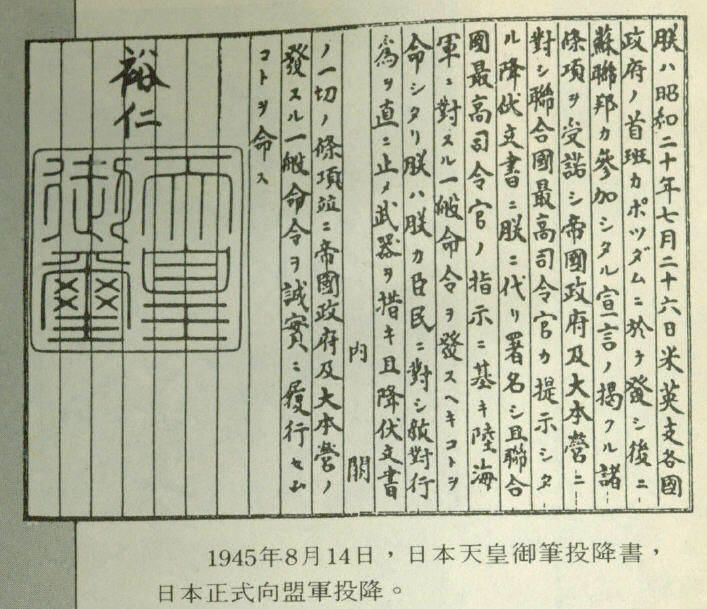 朕ハ昭和二十年七月二十六日米英支各國
政府ノ首班カポツダムニ於テ發シ後ニ
蘇聯邦カ參加シタル宣言ノ掲クル諸
條項ヲ受諾シ帝國政府及大本營ニ
對シ聯合國最高司令官カ提示シタ
ル降伏文書ニ朕ニ代リ署名シ且聯合
國最高司令官ノ指示ニ基キ陸海
軍ニ對スル一般命令ヲ發スヘキコトヲ
命シタリ朕ハ朕カ臣民ニ對シ敵對行
為ヲ直ニ止メ武器ヲ措キ且降伏文書
內閣
ノ一切ノ條項竝ニ帝國政府及大本營ノ
發スル一般命令ヲ誠實ニ履行セム
コトヲ命ス
裕仁
天皇
御璽
1945年8月14日，日本天皇御筆投降書，
日本正式向盟軍投降。